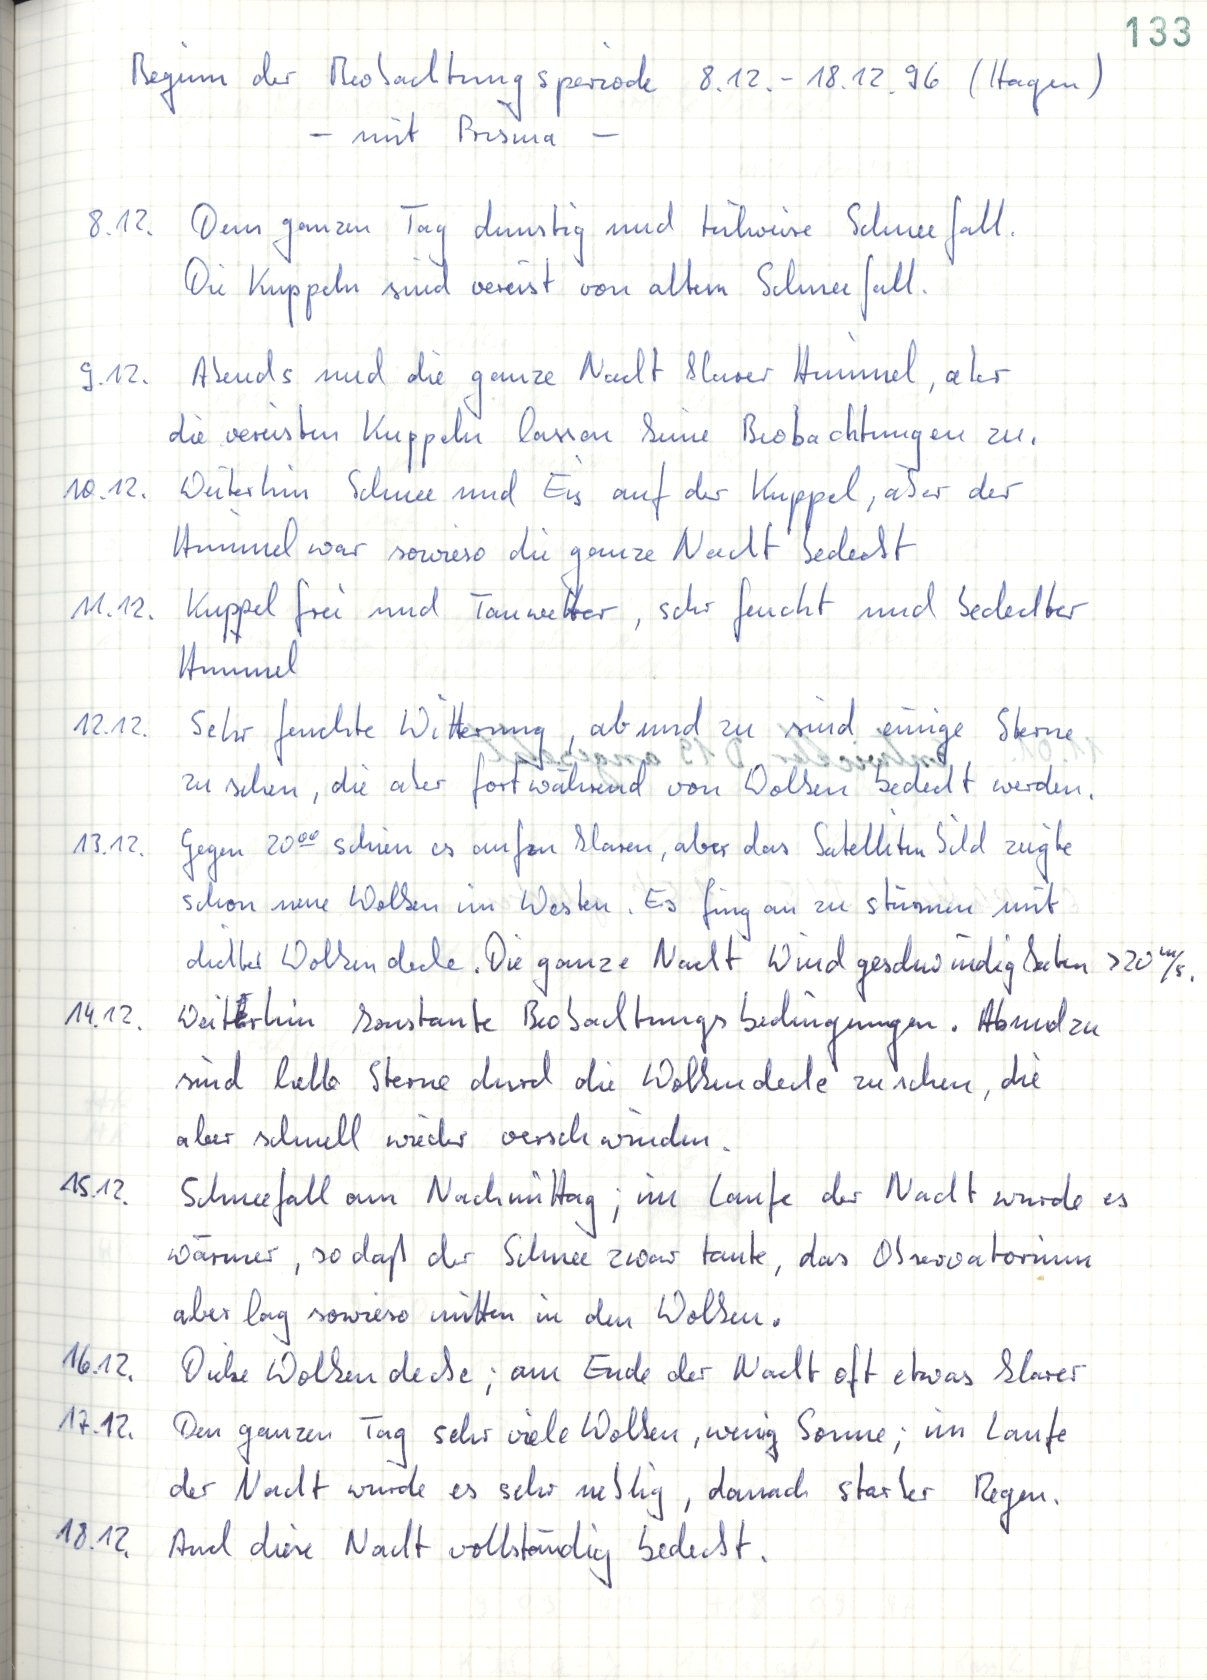 133
Beginn der Beobachtungsperiode 8.12. - 18.12.96 (Hagen)
- mit Prisma -
8.12. Den ganzen Tag dunstig und teilweise Schneefall.
Die Kuppeln sind vereist von altem Schneefall.
9.12. Abends und die ganze Nacht klarer Himmel, aber
die vereisten Kuppeln lassen keine Beobachtungen zu.
10.12. Weiterhin Schnee und Eis auf der Kuppel, aber der
Himmel war sowieso die ganze Nacht bedeckt
11.12. Kuppel frei und Tauwetter, sehr feucht und bedeckter
Himmel
12.12. Sehr feuchte Witterung, ab und zu sind einige Sterne
zu sehen, die aber fortwährend von Wolken bedeckt werden.
13.12. Gegen 20⁰⁰ schien es aufzuklaren, aber das Satellitenbild zeigte
schon neue Wolken im Westen. Es fing an zu stürmen mit
dichter Wolkendecke. Die ganze Nacht Windgeschwindigkeiten >20 m/s.
14.12. Weiterhin konstante Beobachtungsbedingungen. Ab und zu
sind helle Sterne durch die Wolkendecke zu sehen, die
aber schnell wieder verschwinden.
15.12. Schneefall am Nachmittag; im Laufe der Nacht wurde es
wärmer, so daß der Schnee zwar taute, das Observatorium
aber lag sowieso mitten in den Wolken.
16.12. Dicke Wolkendecke; am Ende der Nacht oft etwas klarer
17.12. Den ganzen Tag sehr viele Wolken, wenig Sonne; im Laufe
der Nacht wurde es sehr neblig, danach starker Regen.
18.12. Auch diese Nacht vollständig bedeckt.